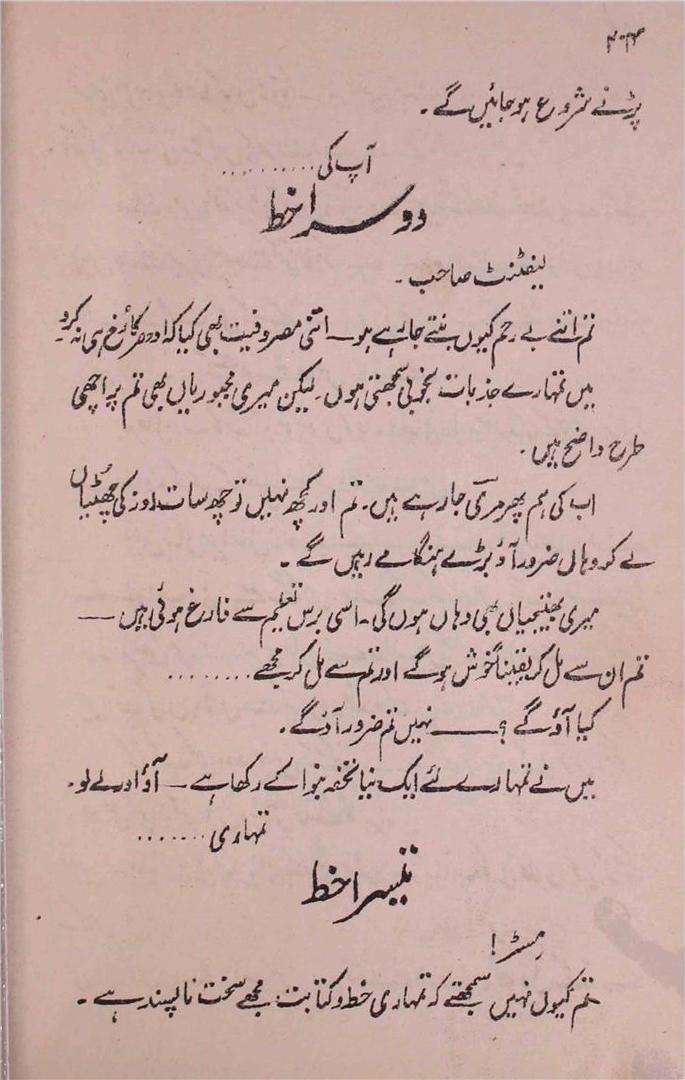 ۴۰۴
پڑنے شروع ہو جائیں گے۔
آپ کی ..........
دوسرا خط
لیفٹنٹ صاحب۔
تم اتنے بے رحم کیوں بنتے جا رہے ہو — اتنی مصروفیت بھی کیا کہ ادھر کا رُخ ہی نہ کرو۔
میں تمہارے جذبات بخوبی سمجھتی ہوں۔ لیکن میری مجبوریاں بھی تم پر اچھی
طرح واضح ہیں۔
اب کی ہم پھر مری جا رہے ہیں۔ تم اور کچھ نہیں تو چھ سات روز کی چھٹیاں
لے کر وہاں ضرور آؤ بڑے ہنگامے رہیں گے۔
میری بھتیجیاں بھی وہاں ہوں گی۔ اسی برس تعلیم سے فارغ ہوئی ہیں —
تم ان سے مل کر یقیناً خوش ہوگے اور تم سے مل کر مجھے ........
کیا آؤ گے؟ — نہیں تم ضرور آؤ گے۔
میں نے تمہارے لئے ایک نیا تحفہ بنوا کے رکھا ہے — آؤ اور لے لو۔
تمہاری .......
تیسرا خط
مسٹر!
تم کیوں نہیں سمجھتے کہ تمہاری خط و کتابت مجھے سخت ناپسند ہے۔